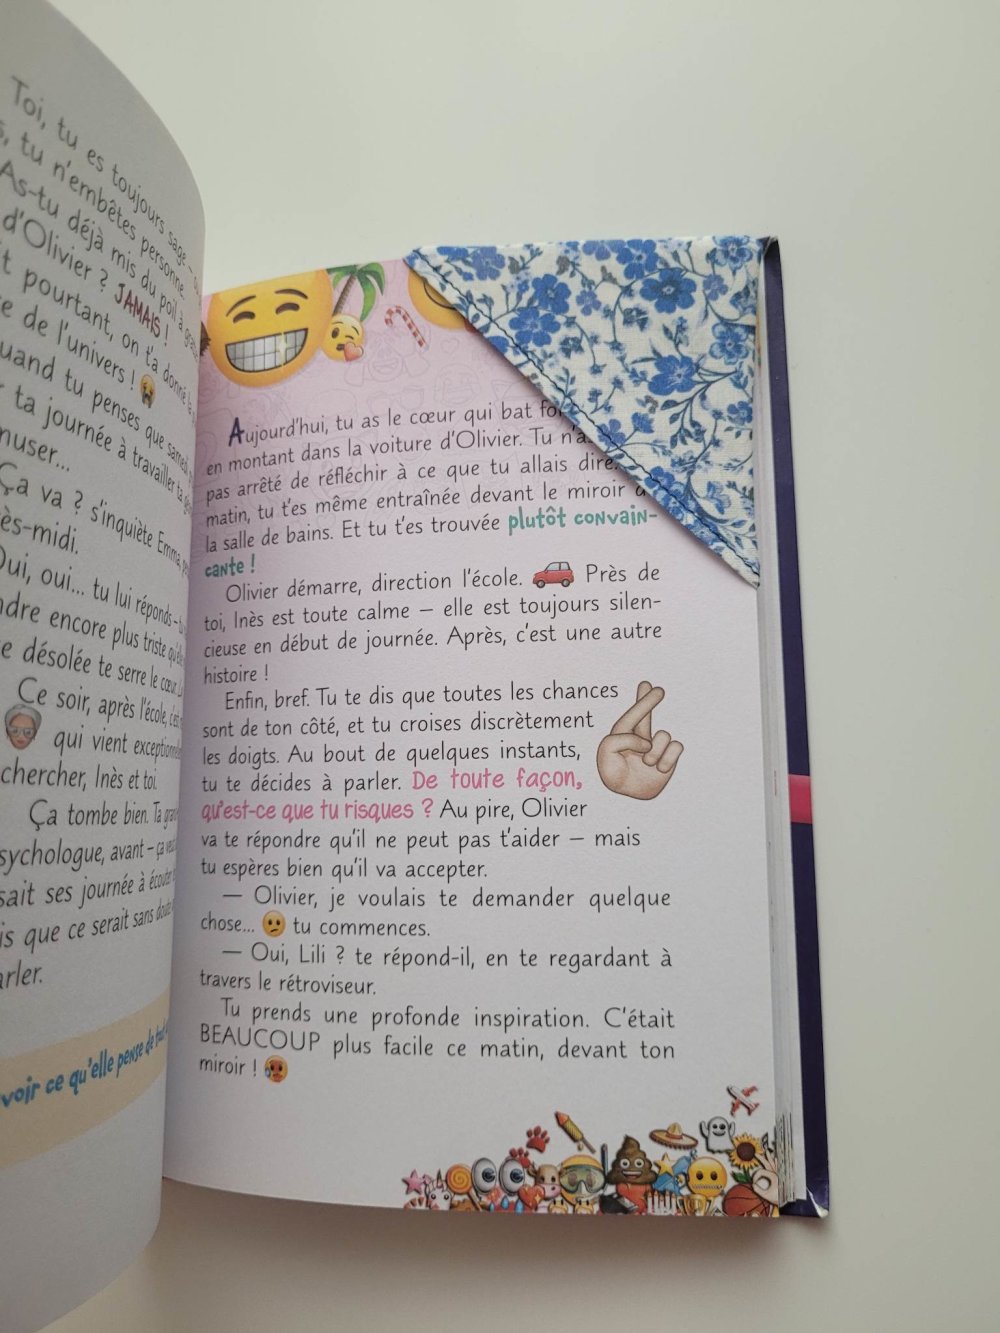 Toi, tu es toujours sage –
tu n'embêtes personne.
As-tu déjà mis du poil à
d'Olivier ? JAMAIS !
pourtant, on t'a donné
de l'univers !
tu penses que samedi
ta journée à travailler ta
Ça va ? s'inquiète Emma,
oui... tu lui réponds –
encore plus triste
désolée te serre le cœur.
Ce soir, après l'école, c'est
qui vient
chercher, Inès et toi.
Ça tombe bien. Ta
avant – ça
ses journée à écouter
que ce serait sans doute
ce qu'elle pense de tout
Aujourd'hui, tu as le cœur qui bat
en montant dans la voiture d'Olivier. Tu
pas arrêté de réfléchir à ce que tu allais dire.
matin, tu t'es même entraînée devant le miroir
la salle de bains. Et tu t'es trouvée plutôt convain-
cante !
Olivier démarre, direction l'école. Près de
toi, Inès est toute calme – elle est toujours silen-
cieuse en début de journée. Après, c'est une autre
histoire !
Enfin, bref. Tu te dis que toutes les chances
sont de ton côté, et tu croises discrètement
les doigts. Au bout de quelques instants,
tu te décides à parler. De toute façon,
qu'est-ce que tu risques ? Au pire, Olivier
va te répondre qu'il ne peut pas t'aider – mais
tu espères bien qu'il va accepter.
– Olivier, je voulais te demander quelque
chose... tu commences.
– Oui, Lili ? te répond-il, en te regardant à
travers le rétroviseur.
Tu prends une profonde inspiration. C'était
BEAUCOUP plus facile ce matin, devant ton
miroir !